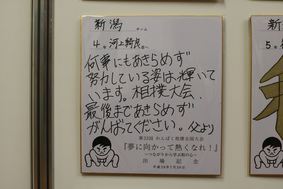 新潟 チーム
4。河上騎良。
何事にもあきらめず
努力している姿は輝いて
います。相撲大会‥
最後まであきらめず
がんばってください。父より
第33回 わんぱく相撲全国大会
『夢に向かって熱くなれ！』
～つながりから学ぶ和の心～
出場記念